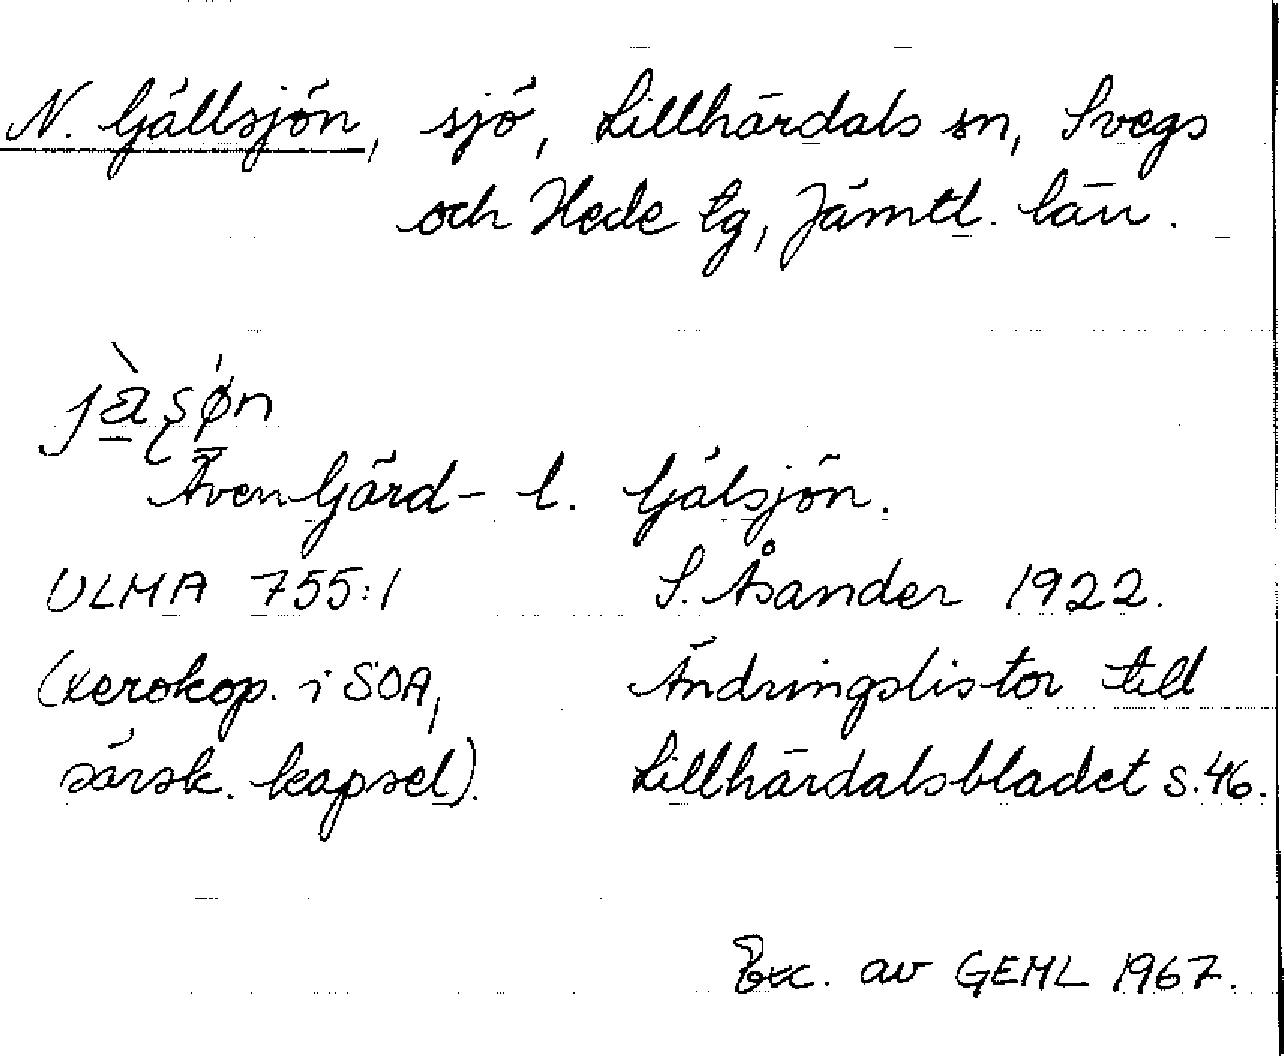 N. Gällsjön, sjö, Lillhärdals sn, Svegs
och Hede tg, Jämtl. län.
Även Gärd- l. Gälsjön.
ULMA 755:1 S. Åsander 1922.
(xerokop. i SOA, Ändringslistor till
särsk. kapsel). Lillhärdalsbladet s. 46.
Exc. av GEML 1967.